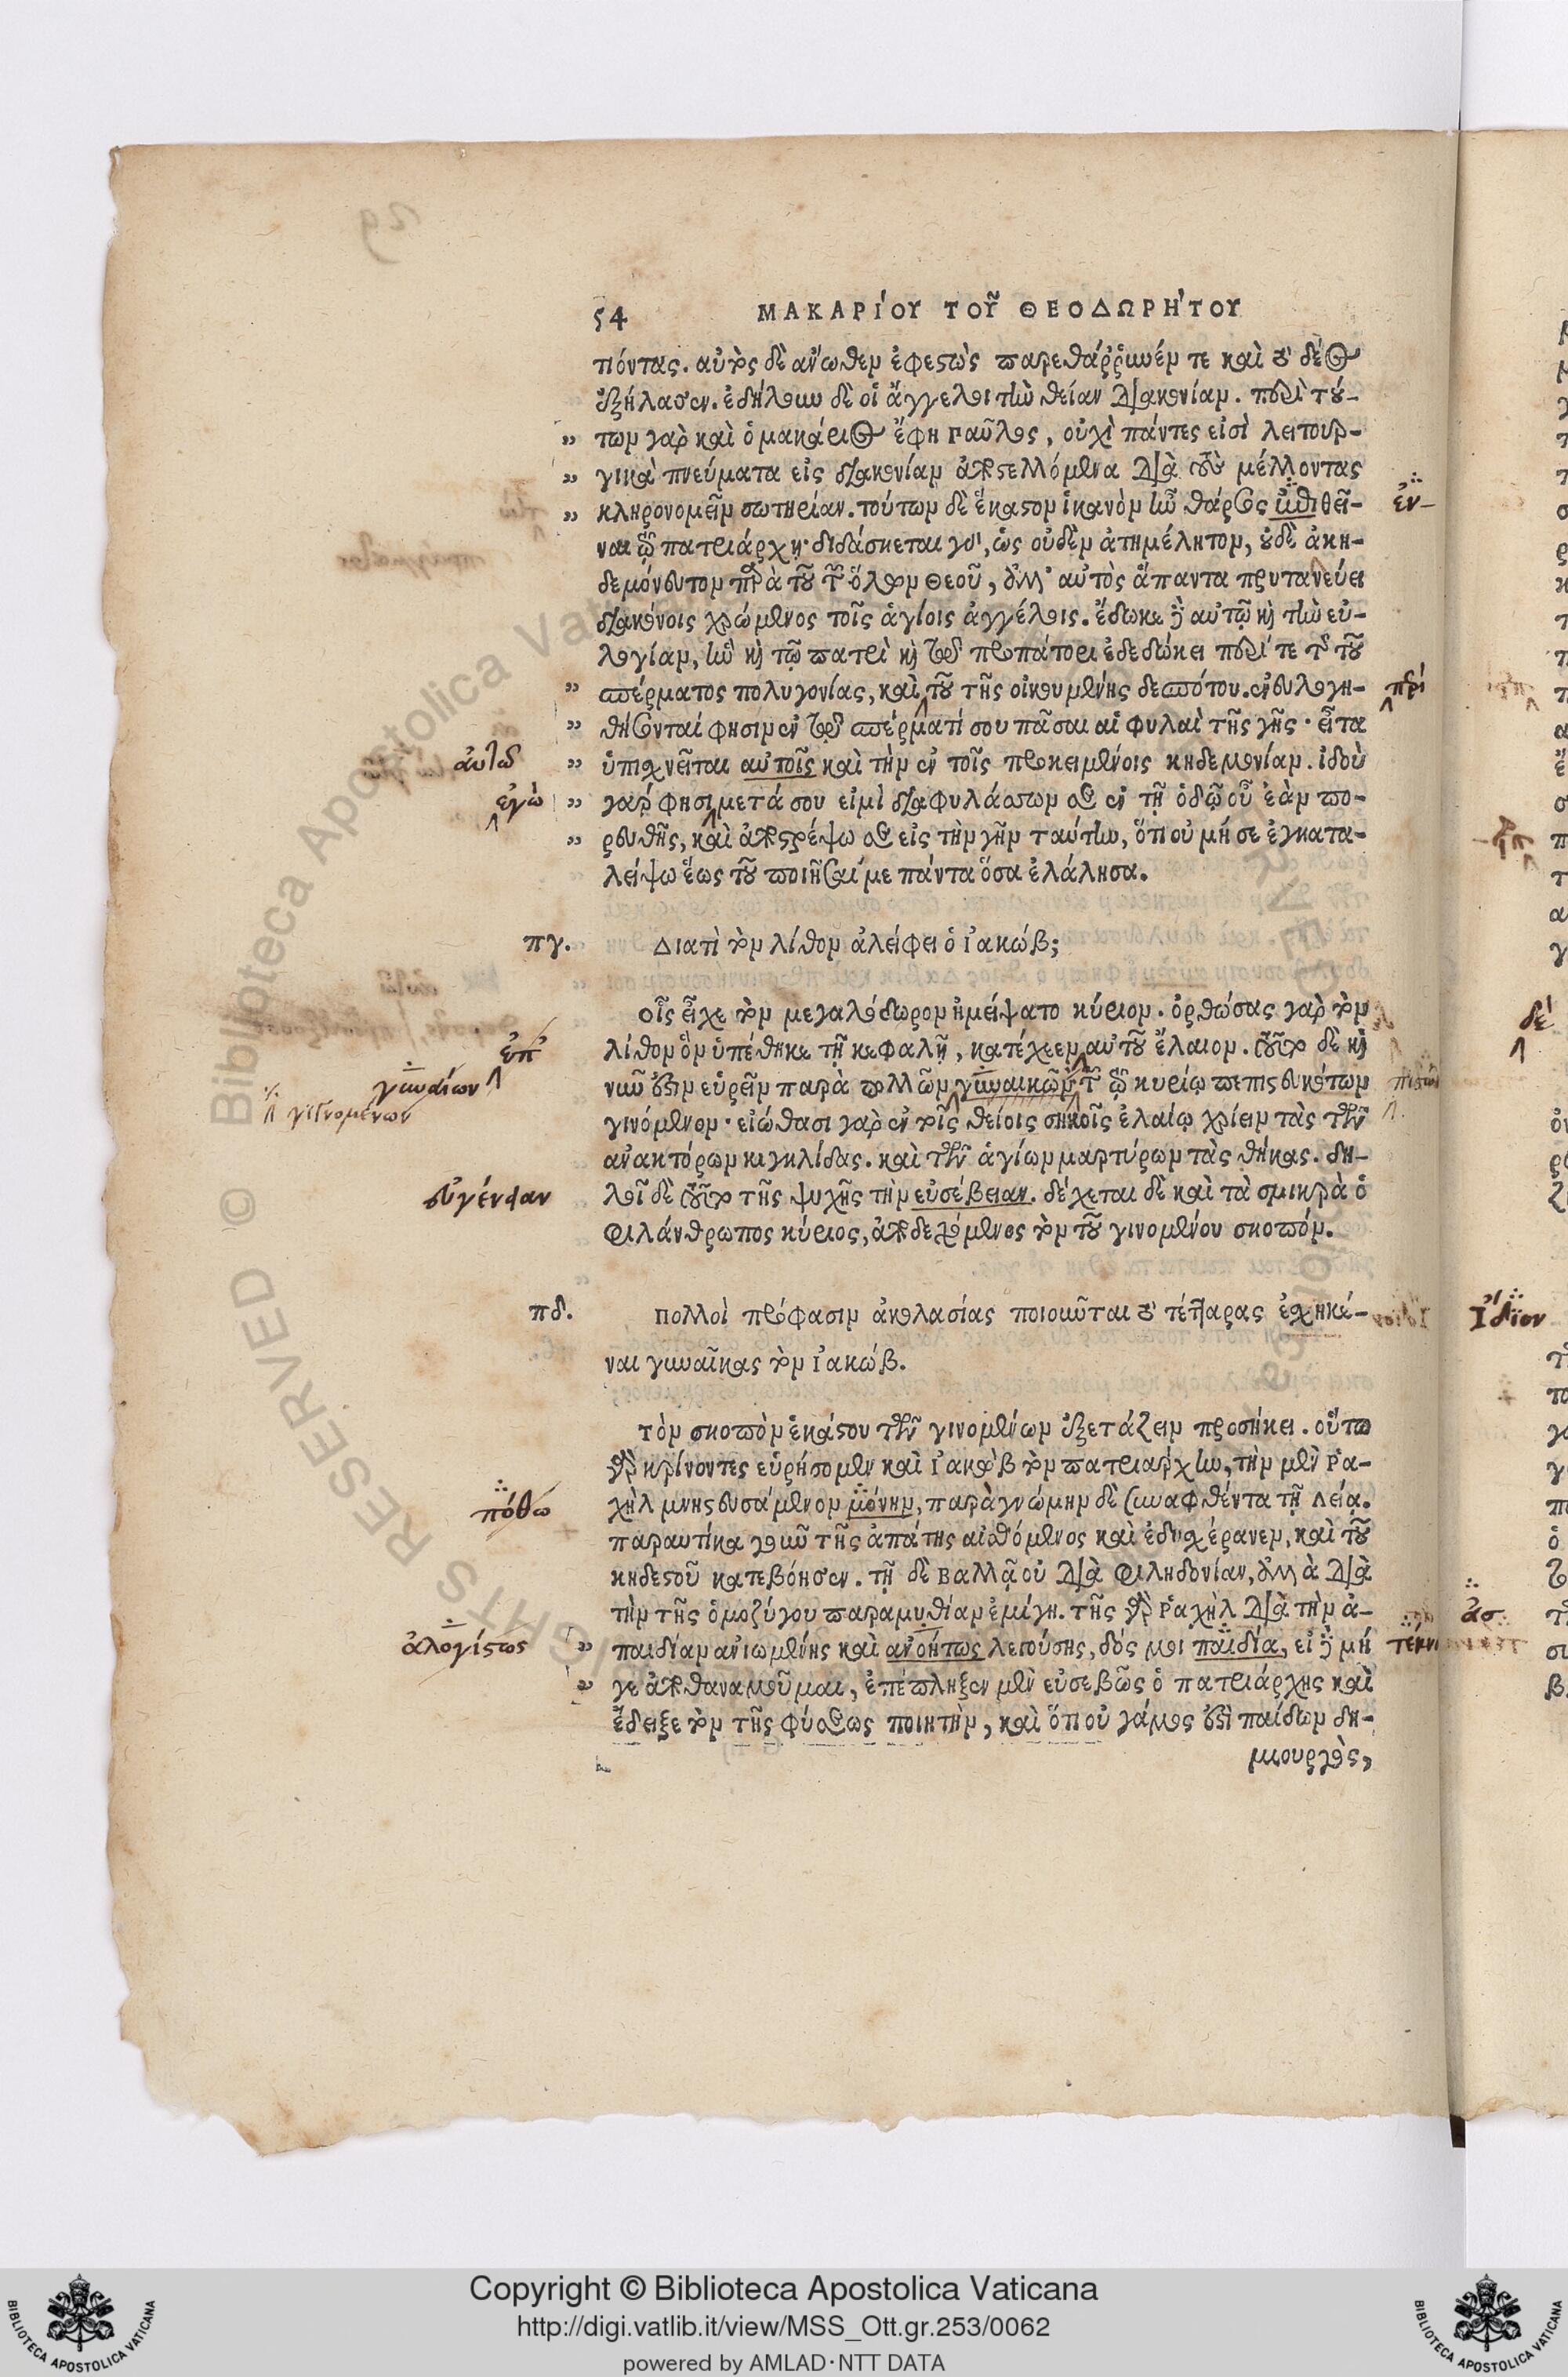 54 ΜΑΚΑΡΊΟΥ ΤΟΥ͂ ΘΕΟΔΩΡΉΤΟΥ
πόντας. αὐτὸς δὲ ἄνωθεν ἐφεστὼς παρεθάῤῥυνέν τε καὶ τὸ δέος
ἐξήλασεν. ἐδήλουν δὲ οἱ ἄγγελοι τὴν θείαν διακονίαν. περὶ τού-
„ των γὰρ καὶ ὁ μακάριος ἔφη Παῦλος, οὐχὶ πάντες εἰσὶ λειτουρ-
„ γικὰ πνεύματα εἰς διακονίαν ἀποστελλόμενα διὰ τοὺς μέλλοντας
„ κληρονομεῖν σωτηρίαν. τούτων δὲ ἕκαστον ἱκανὸν ἦν θάρσος ἐπιθεῖ- ἐν-
ναι τῷ πατριάρχῃ· διδάσκεται γὰρ, ὡς οὐδὲν ἀτημέλητον, οὐδὲ ἀκη-
δεμόνευτον παρὰ τοῦ τῶν ὅλων Θεοῦ, ἀλλ' αὐτὸς ἅπαντα πρυτανεύει
διακόνοις χρώμενος τοῖς ἁγίοις ἀγγέλοις. ἔδωκε δὲ αὐτῷ καὶ τὴν εὐ-
λογίαν, ἣν καὶ τῷ πατρὶ καὶ τῷ προπάτορι ἐδεδώκει περί τε τῆς τοῦ
„ σπέρματος πολυγονίας, καὶ τοῦ τῆς οἰκουμένης δεσπότου. ἐνευλογη- περί
„ θήσονταί φησιν ἐν τῷ σπέρματί σου πᾶσαι αἱ φυλαὶ τῆς γῆς· εἶτα
αὐτῶ „ ὑπισχνεῖται αὐτοῖς καὶ τὴν ἐν τοῖς προκειμένοις κηδεμονίαν. ἰδοὺ
ἐγὼ „ γάρ φησι μετά σου εἰμὶ διαφυλάσσων σε ἐν τῇ ὁδῷ οὗ ἐὰν πο-
„ ρευθῇς, καὶ ἀποστρέψω σε εἰς τὴν γῆν ταύτην, ὅτι οὐ μή σε ἐγκατα-
λείψω ἕως τοῦ ποιῆσαί με πάντα ὅσα ἐλάλησα.
πγ. Διατὶ τὸν λίθον ἀλείφει ὁ Ἰακώβ;
Οἷς εἶχε τὸν μεγαλόδωρον ἠμείψατο κύριον. ὀρθώσας γὰρ τὸν
ἐπ' λίθον ὃν ὑπέθηκε τῇ κεφαλῇ, κατέχεεν αὐτοῦ ἔλαιον. τοῦτο δὲ καὶ
γυναίων νῦν ἔστιν εὑρεῖν παρὰ πολλῶν γυναικῶν τῶν τῷ κυρίῳ πεπιστευκότων
γιγνομένων γινόμενον· εἰώθασι γὰρ ἐν τοῖς θείοις σηκοῖς ἐλαίῳ χρίειν τὰς τῶν
ἀνακτόρων κιγκλίδας. καὶ τῶν ἁγίων μαρτύρων τὰς θήκας. δη-
εὐγένειαν λοῖ δὲ τοῦτο τῆς ψυχῆς τὴν εὐσέβειαν. δέχεται δὲ καὶ τὰ σμικρὰ ὁ
φιλάνθρωπος κύριος, ἀποδεχόμενος τὸν τοῦ γινομένου σκοπόν.
πδ. Πολλοὶ πρόφασιν ἀκολασίας ποιοῦνται τὸ τέτταρας ἐσχηκέ-
ναι γυναῖκας τὸν Ἰακώβ.
Τὸν σκοπὸν ἑκάστου τῶν γινομένων ἐξετάζειν προσήκει. οὕτω
γὰρ κρίνοντες εὑρήσομεν καὶ Ἰακὼβ τὸν πατριάρχην, τὴν μὲν Ῥα-
πόθω χὴλ μνηστευσάμενον μόνην, παρὰ γνώμην δὲ συναφθέντα τῇ Λείᾳ.
παραυτίκα γοῦν τῆς ἀπάτης αἰσθόμενος καὶ ἐδυσχέρανεν, καὶ τοῦ
κηδεστοῦ κατεβόησεν. τῇ δὲ Βαλλᾷ οὐ διὰ φιληδονίαν, ἀλλὰ διὰ
τὴν τῆς ὁμοζύγου παραμυθίαν ἐμίγη. τῆς γὰρ Ῥαχὴλ διὰ τὴν ἀ-
ἀλογίστως „ παιδίαν ἀνιωμένης καὶ ἀνοήτως λεγούσης, δός μοι παιδία, εἰ δὲ μή
„ γε ἀποθανοῦμαι, ἐπέπληξεν μὲν εὐσεβῶς ὁ πατριάρχης καὶ
ἔδειξε τὸν τῆς φύσεως ποιητὴν, καὶ ὅτι οὐ γάμος ἐστὶ παίδων δη-
μιουργὸς,
δέ
Ἴδιον
Copyright © Biblioteca Apostolica Vaticana
http://digi.vatlib.it/view/MSS_Ott.gr.253/0062
powered by AMLAD·NTT DATA
BIBLIOTECA APOSTOLICA VATICANA
BIBLIOTECA APOSTOLICA VATICANA